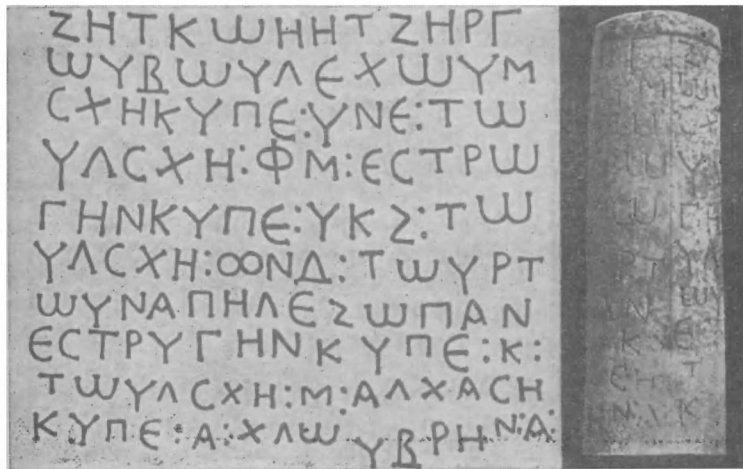 ΖΗΤΚΩΗΗΤΖΗΡΓ
ΩΥΒΩΥΛΕΧΩΥΜ
CΧΗΚΥΠΕ:ΥΝΕ:ΤΩ
ΥΛCΧΗ:ΦΜ:ΕCΤΡΩ
ΓΗΝΚΥΠΕ:ΥΚΖ:ΤΩ
ΥΛCΧΗ:ΟΟΝΔ:ΤΩΥΡΤ
ΩΥΝΑΠΗΛΕΖΩΠΑΝ
ΕCΤΡΥΓΗΝΚΥΠΕ:Κ:
ΤΩΥΛCΧΗ:Μ:ΑΛΧΑCΗ
ΚΥΠΕ:Α:ΧΛΩΥΒΡΗΝ:Α: